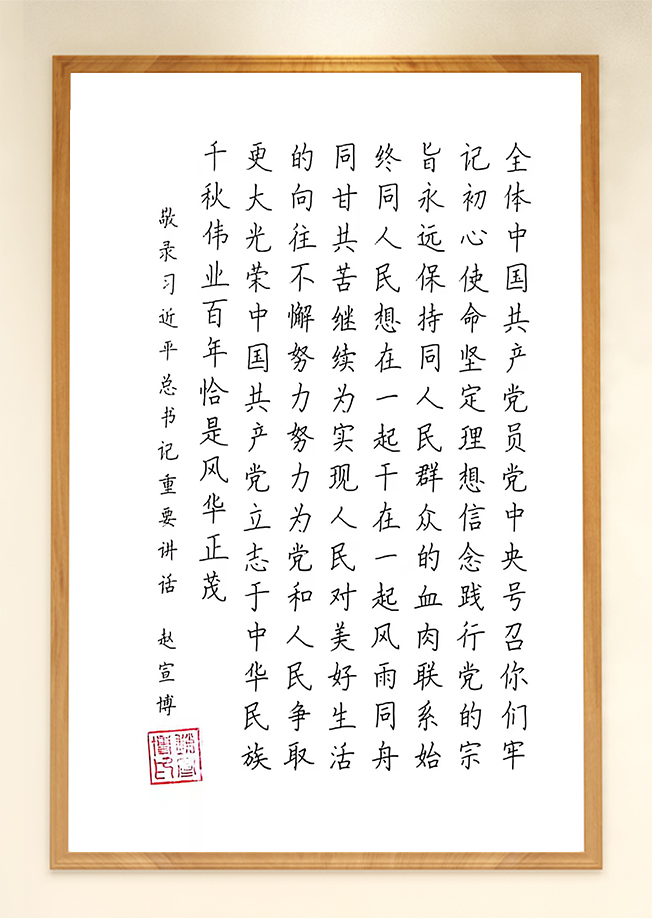 全体中国共产党员党中央号召你们牢
记初心使命坚定理想信念践行党的宗
旨永远保持同人民群众的血肉联系始
终同人民想在一起干在一起风雨同舟
同甘共苦继续为实现人民对美好生活
的向往不懈努力努力为党和人民争取
更大光荣中国共产党立志于中华民族
千秋伟业百年恰是风华正茂
敬录习近平总书记重要讲话 赵宣博